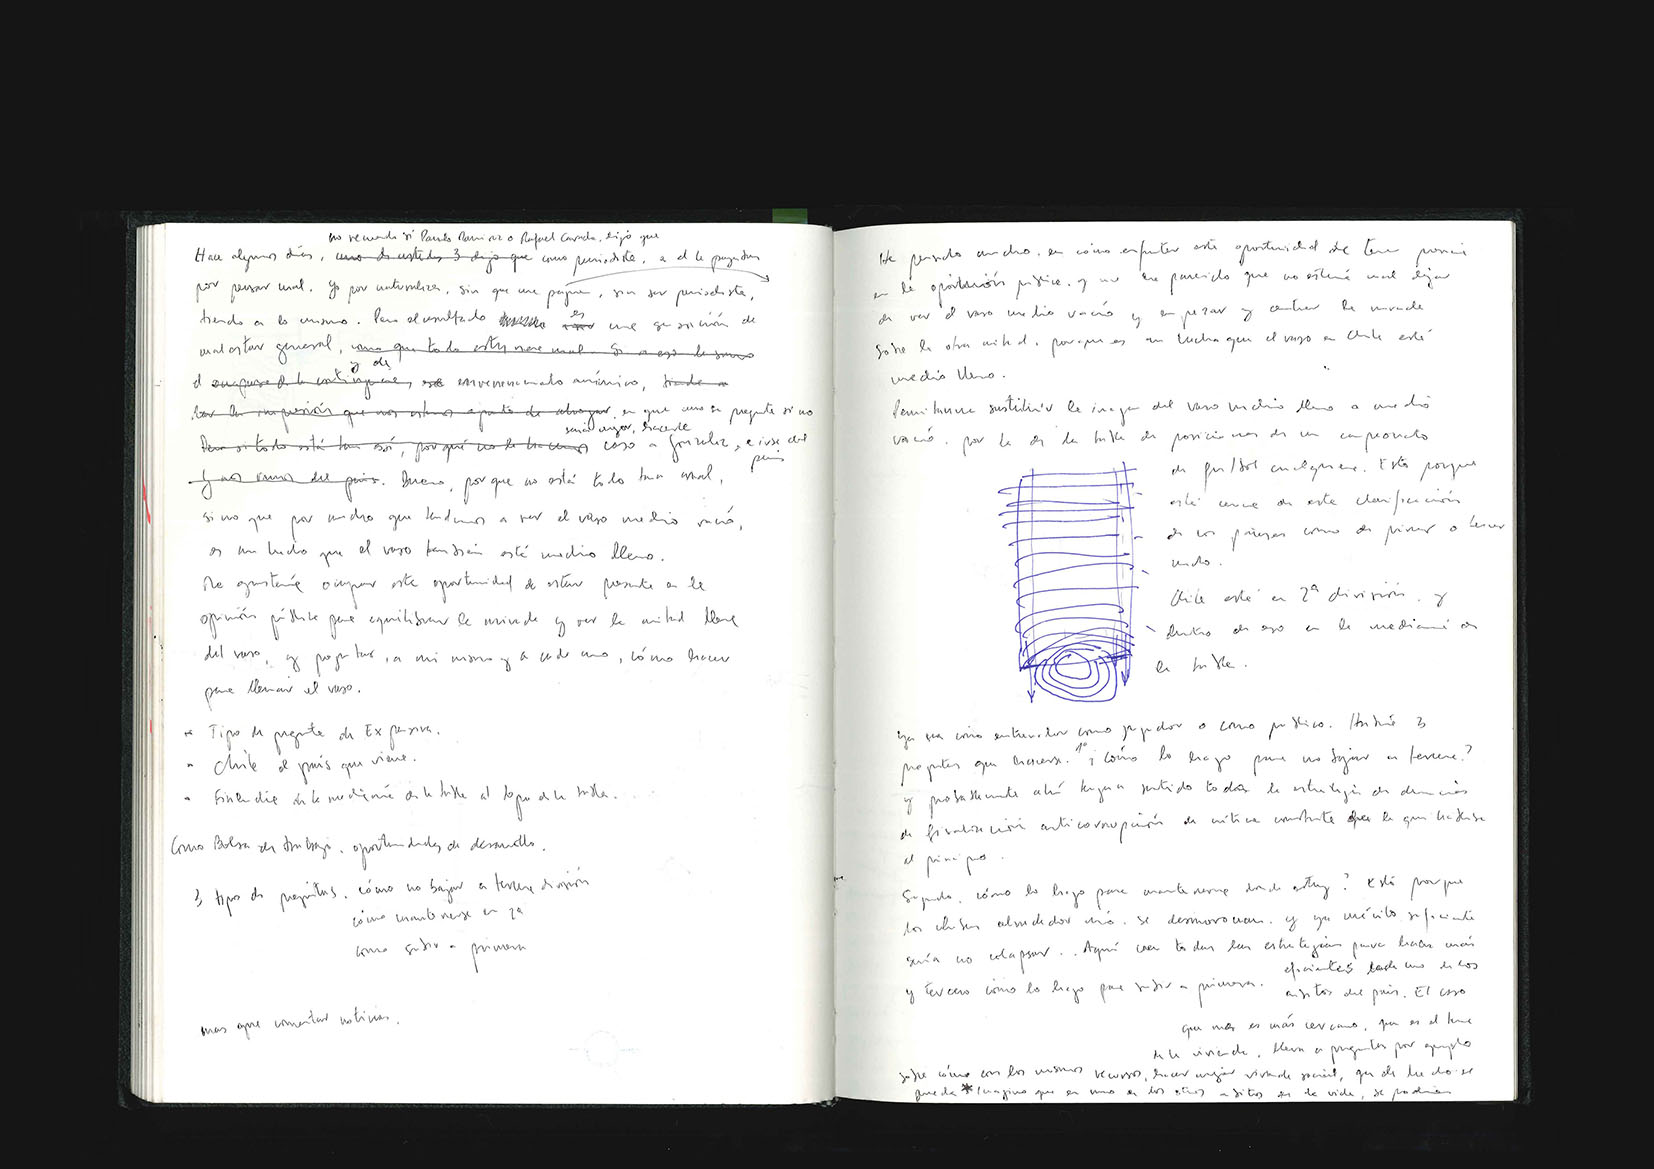 no recuerdo si Paulo Ramirez o Rafael Cavada, dijo que
Hace algunos días, uno de ustedes 3 dijo que como periodista, a el le pagaban
por pensar mal. Yo por naturaleza, sin que me paguen, sin ser periodista,
tiendo a lo mismo. Pero el resultado es una sensación de
malestar general, como que todo estuviera mal. Si a eso le sumo
y de
el envenenamiento anímico,
dar la impresión que nos estamos a punto de ahogar, en que uno se pregunta si no
sería mejor, hacerle
Pero si todo está tan así, por qué no le hacemos caso a González, e irse del
país
y nos vamos del país. Bueno, porque no está todo tan mal,
sino que por mucho que tendamos a ver el vaso medio vacío,
es un hecho que el vaso también está medio lleno.
Me gustaría ocupar esta oportunidad de estar presente en la
opinión pública para equilibrar la mirada y ver la mitad llena
del vaso, y preguntar, a mi mismo y a cada uno, cómo hacer
para llenar el vaso.
Tipo de pregunta de Expansiva.
Chile el país que viene.
de la medianía de la tabla al tope de la tabla.
Como Bolsa de trabajo, oportunidades de desarrollo.
3 tipos de preguntas. cómo no bajar a tercera división
cómo mantenerse en 2ª
como subir a primera
mas que comentar noticias.
He pensado mucho, en cómo enfrentar esta oportunidad de tener
en la opinión pública, y me ha parecido que no estaría mal dejar
de ver el vaso medio vacío y empezar y centrar la mirada
sobre la otra mitad, porque es un hecho que el vaso en Chile está
medio lleno.
Permítanme sustituir la imagen del vaso medio lleno a medio
vacío, por la de la tabla de posiciones de un campeonato
de football cualquiera. Esto porque
está cerca de esta clasificación
de los países como de primer o tercer
mundo.
Chile está en 2ª división, y
dentro de eso en la medianía de
la tabla.
Ya sea como entrenador como jugador o como público. Habría 3
preguntas que hacerse. 1º ¿Cómo lo hago para no bajar a tercera?
y probablemente ahí tenga sentido toda la estrategia de denuncias
de fiscalización anticorrupción de crítica constante
al principio.
Segundo, cómo lo hago para mantenerme donde estoy? Esto porque
los clubes alrededor mío, se desmoronan, y ya mérito suficiente
sería no colapsar. Aquí caen todas las estrategias para hacer más
eficientes cada uno de los
y tercero como lo hago para subir a primera.
ámbitos del país. El caso
que mas es más cercano, que es el tema
de la vivienda, lleva a preguntas por ejemplo
sobre cómo con los mismos recursos, hacer mejor vivienda social, que de hecho se
puede * Imagino que en uno de los otros ámbitos de la vida, se podrían